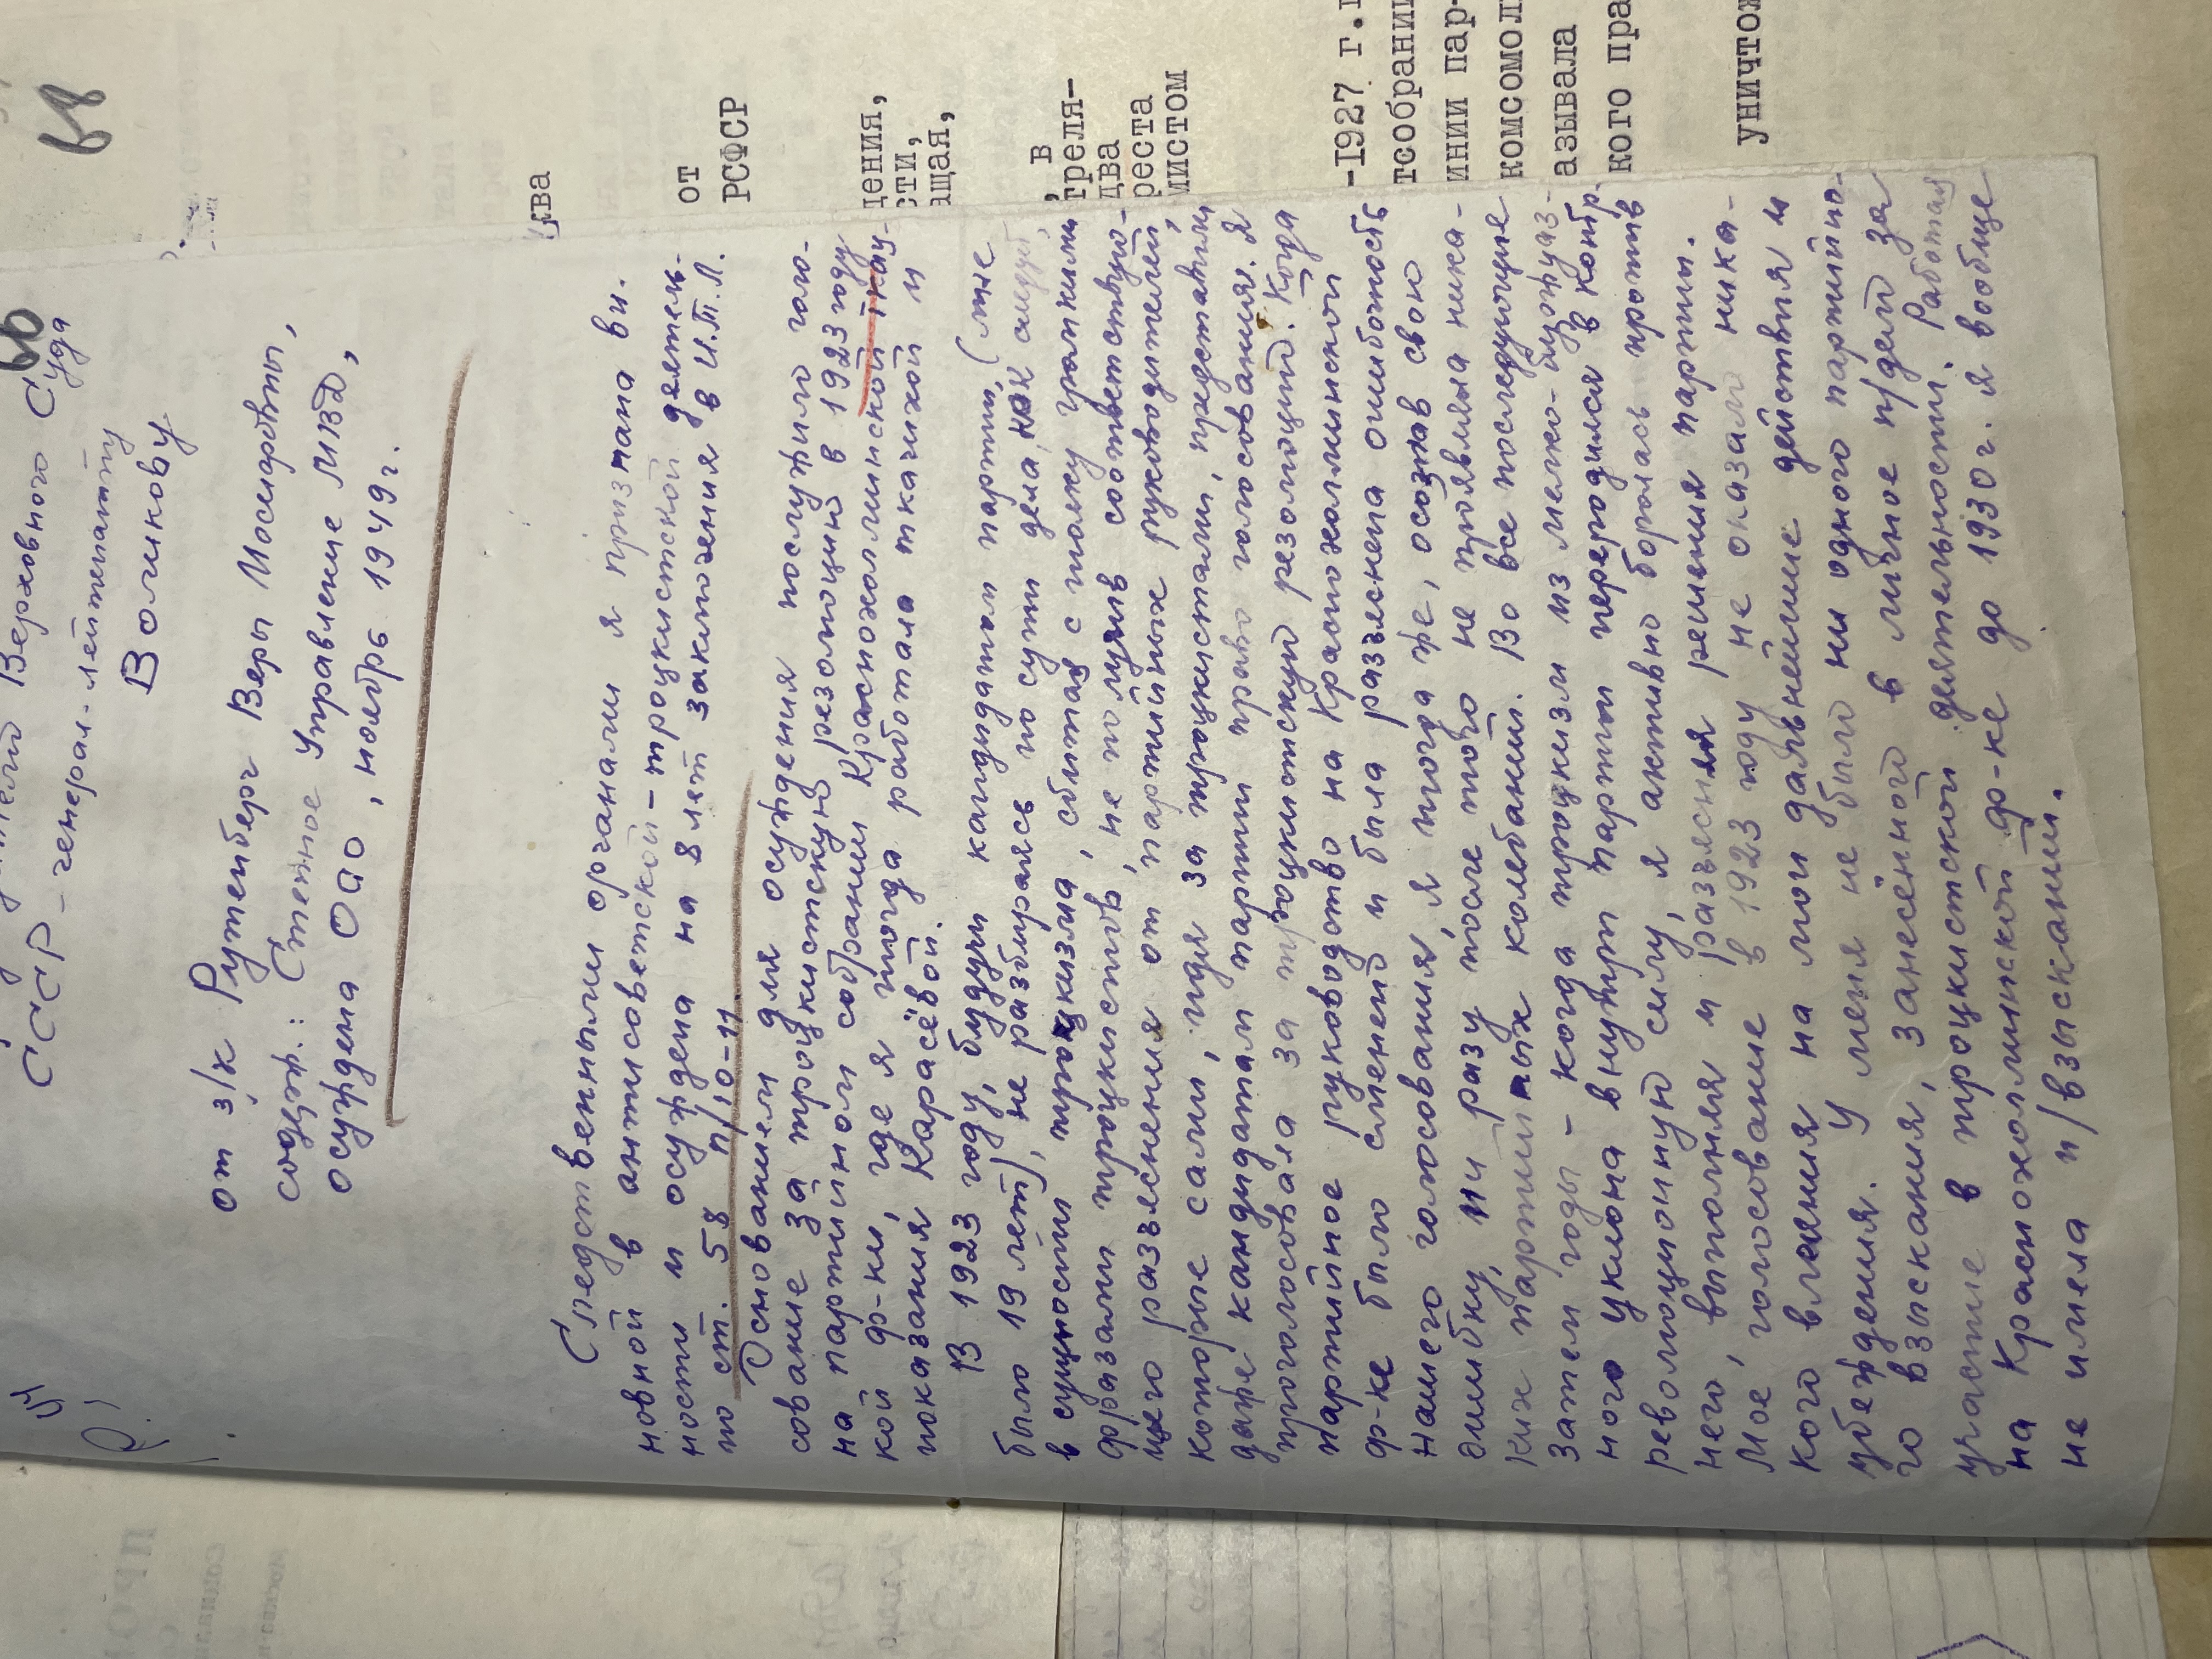 66
68
Верховного Суда
СССР - генерал-лейтенанту
Воликову
от з/к Рутенберг Веры Иосифовны,
содерж.: Степное Управление МВД,
осуждена ОСО, ноябрь 1949 г.
Следственными органами я признана ви-
новной в антисоветской-троцкистской деятель-
ности и осуждена на 8 лет заключения в И.Т.Л.
по ст. 58 п/10-11.
Основанием для осуждения послужило голо-
сование за троцкистскую резолюцию в 1923 году
на партийном собрании Краснохолминской ткац-
кой ф-ки, где я тогда работала ткачихой и
показания Карасёвой.
В 1923 году, будучи кандидатом партии, (мне
было 19 лет), не разбираясь по сути дела, как следует,
в сущности троцкизма, сбитая с толку громкими
фразами троцкистов, не получив соответствую-
щего разъяснения от партийных руководителей,
которые сами, идя за троцкистами, предоставили
даже кандидатам партии право голосования. Я
проголосовала за троцкистскую резолюцию. Когда
партийное руководство на Краснохолминской
ф-ке было сменено и была разъяснена ошибочность
нашего голосования, я тогда же, осознав свою
ошибку, ни разу после того не проявляла ника-
ких партийных колебаний. Во все последующие
затем годы - когда троцкизм из мелко-буржуаз-
ного уклона внутри партии переродился в контр-
революционную силу, я активно боролась против
него, выполняя и разъясняя решения партии.
Мое, голосование в 1923 году не оказало ника-
кого влияния на мои дальнейшие действия и
убеждения. У меня не было ни одного партийно-
го взыскания, занесённого в личное п/дело за
участие в троцкистской деятельности. Работая
на Краснохолминской ф-ке до 1930 г. я вообще
не имела п/взысканий.
ква
от
РСФСР
дения,
сти,
ащая,
, в
треля-
два
реста
мистом
-1927 г.г
тсобрании
инии пар-
комсомол
азывала
кого пра
уничтож